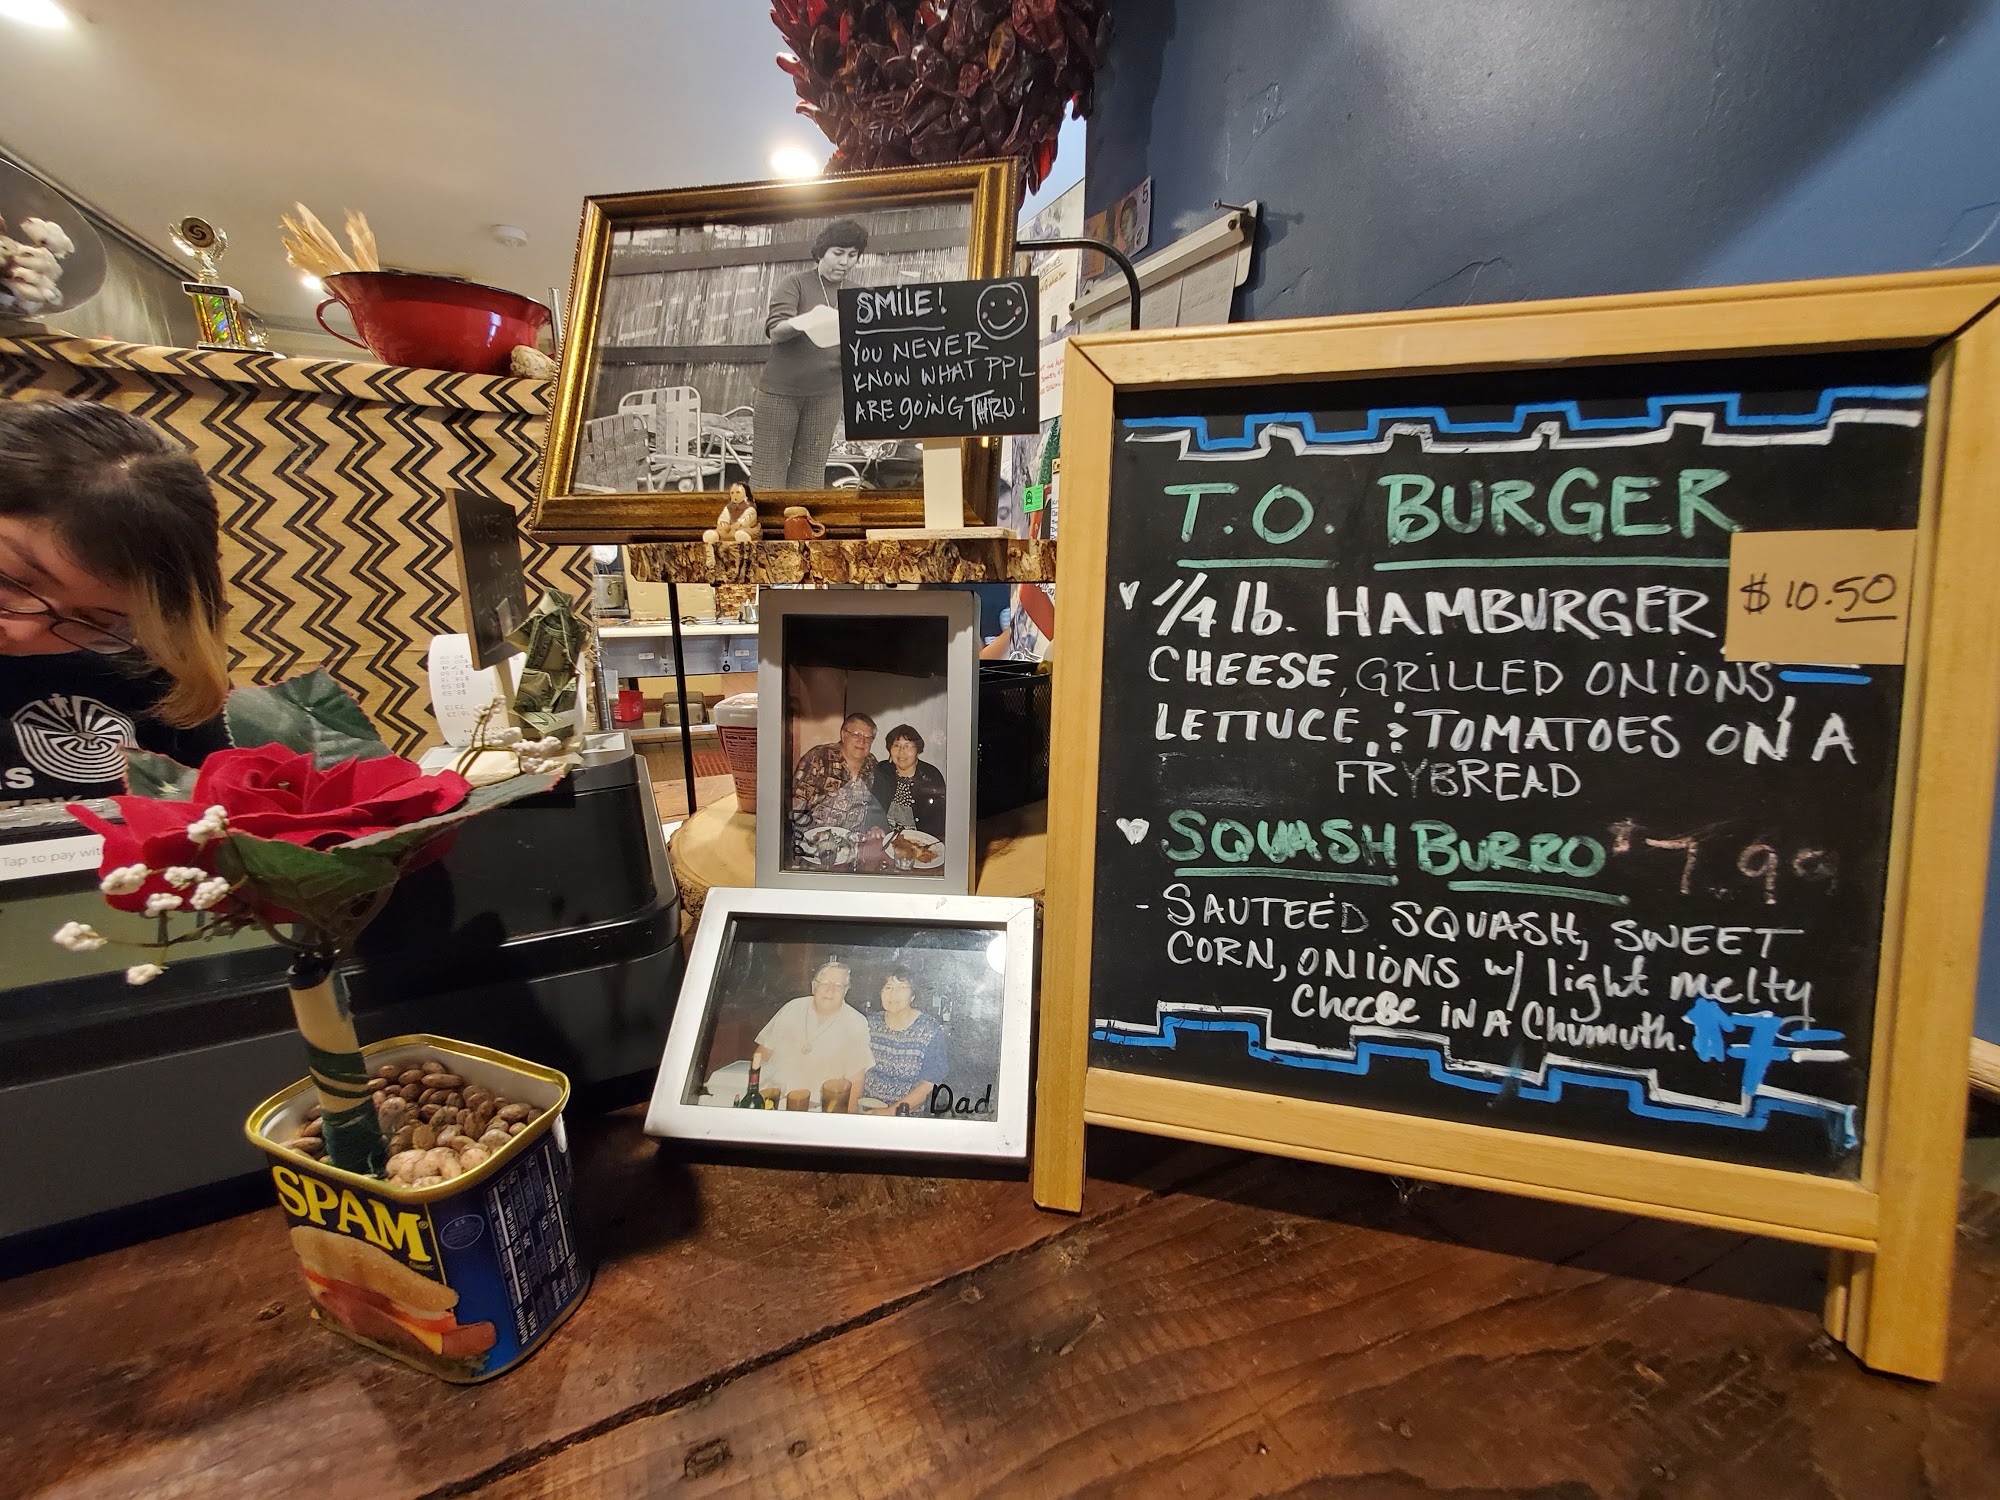 3RD PLACE
SMILE!
YOU NEVER
KNOW WHAT PPL
ARE gOiNG THRU!
5
T.O. BURGER
$10.50
1/4 lb. HAMBURGER
CHEESE, GRiLLED ONIONS,
LETTUCE, & TOMATOES ON A
FRYBREAD
SQUASH BURRO $7.99
- SAUTEED SQUASH, SWEET
CORN, ONiONS w/ light melty
Cheese IN A Chumuth. $7-
Dad
Tap to pay wit
SPAM®
Classic
Nutrition
Facts